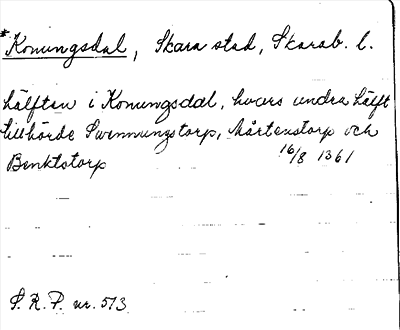 *Konungsdal, Skara stad, Skarab. l.
hälften i Konungsdal, hvars andra hälft
tillhörde Svenningstorp, Mårtenstorp och
Benktstorp 16/8 1361
S. R. P. nr. 513